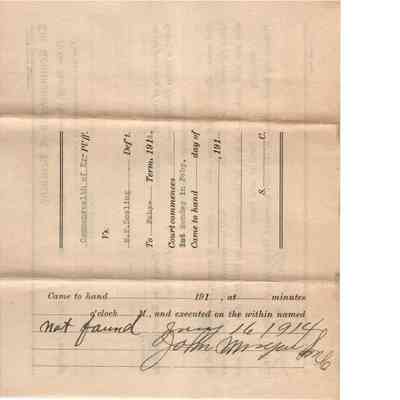 Commonwealth of Ky. Pl'ff.
Vs.
Def't.
To Feby. Term, 191
Court commences
2nd Monday in Feby.
Came to hand day of
, 191
S. C.
Came to hand 191 , at minutes
o'clock M., and executed on the within named
not found Jany 16 1914
John